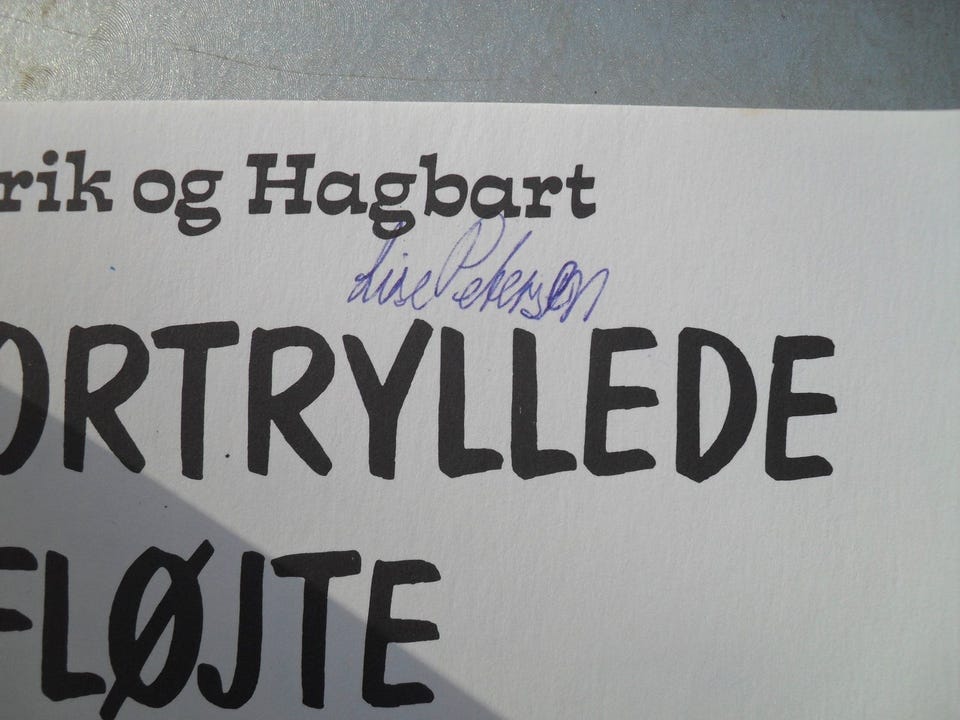 rik og Hagbart
Lise Petersen
ORTRYLLEDE
FLØJTE